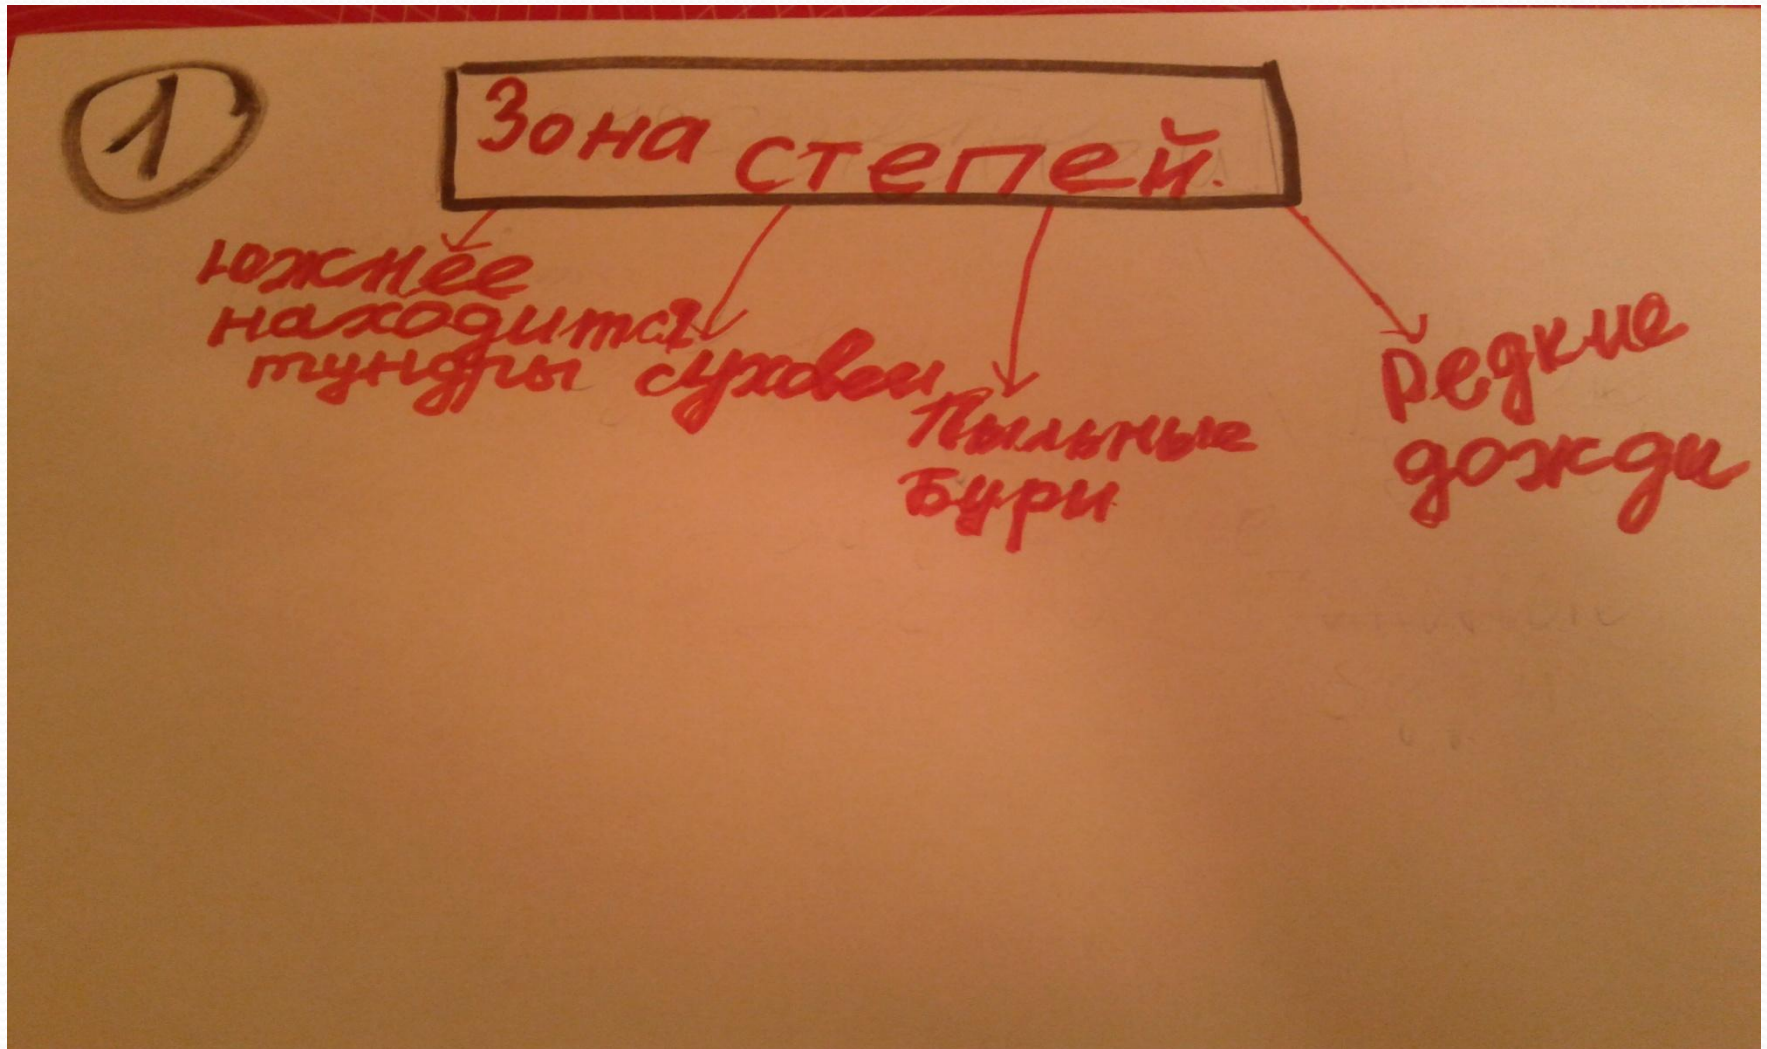 1
Зона степей.
южнее
находится
тундры
суховеи
Пыльные
Бури
Редкие
дожди